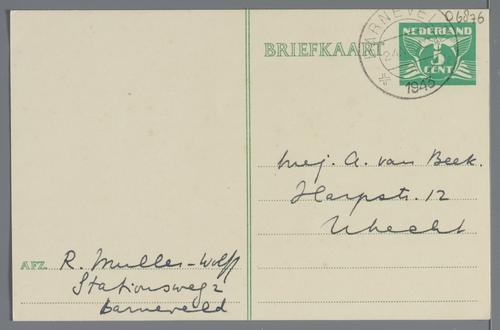 06876
BARNEVEL
1943
NEDERLAND
5
CENT
BRIEFKAART
Mej. A. van Beek.
Harpstr. 12
Utrecht
AFZ. R. Muller-Wolff
Stationsweg 2
Barneveld